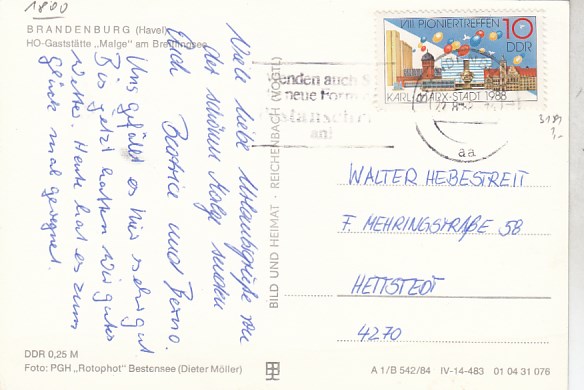 1800
BRANDENBURG (Havel)
HO-Gaststätte „Malge" am Breitlingsee
Viele liebe Urlaubsgrüße von
der schönen Malge senden
Euch Beatrice und Benno.
Uns gefällt es hier sehr gut
Bis jetzt hatten wir gutes
Wetter. Heute hat es zum
Glück mal geregnet.
DDR 0,25 M
Foto: PGH „Rotophot" Bestensee (Dieter Möller)
BILD UND HEIMAT · REICHENBACH (VOGTL)
VIII. PIONIERTREFFEN 10
DDR
KARL-MARX-STADT 1988
enden auch S
neue For
stanschri
an!
aa
3184
WALTER HEBESTREIT
F. MEHRINGSTRAßE 58
HETTSTEDT
4270
A 1/B 542/84 IV-14-483 01 04 31 076